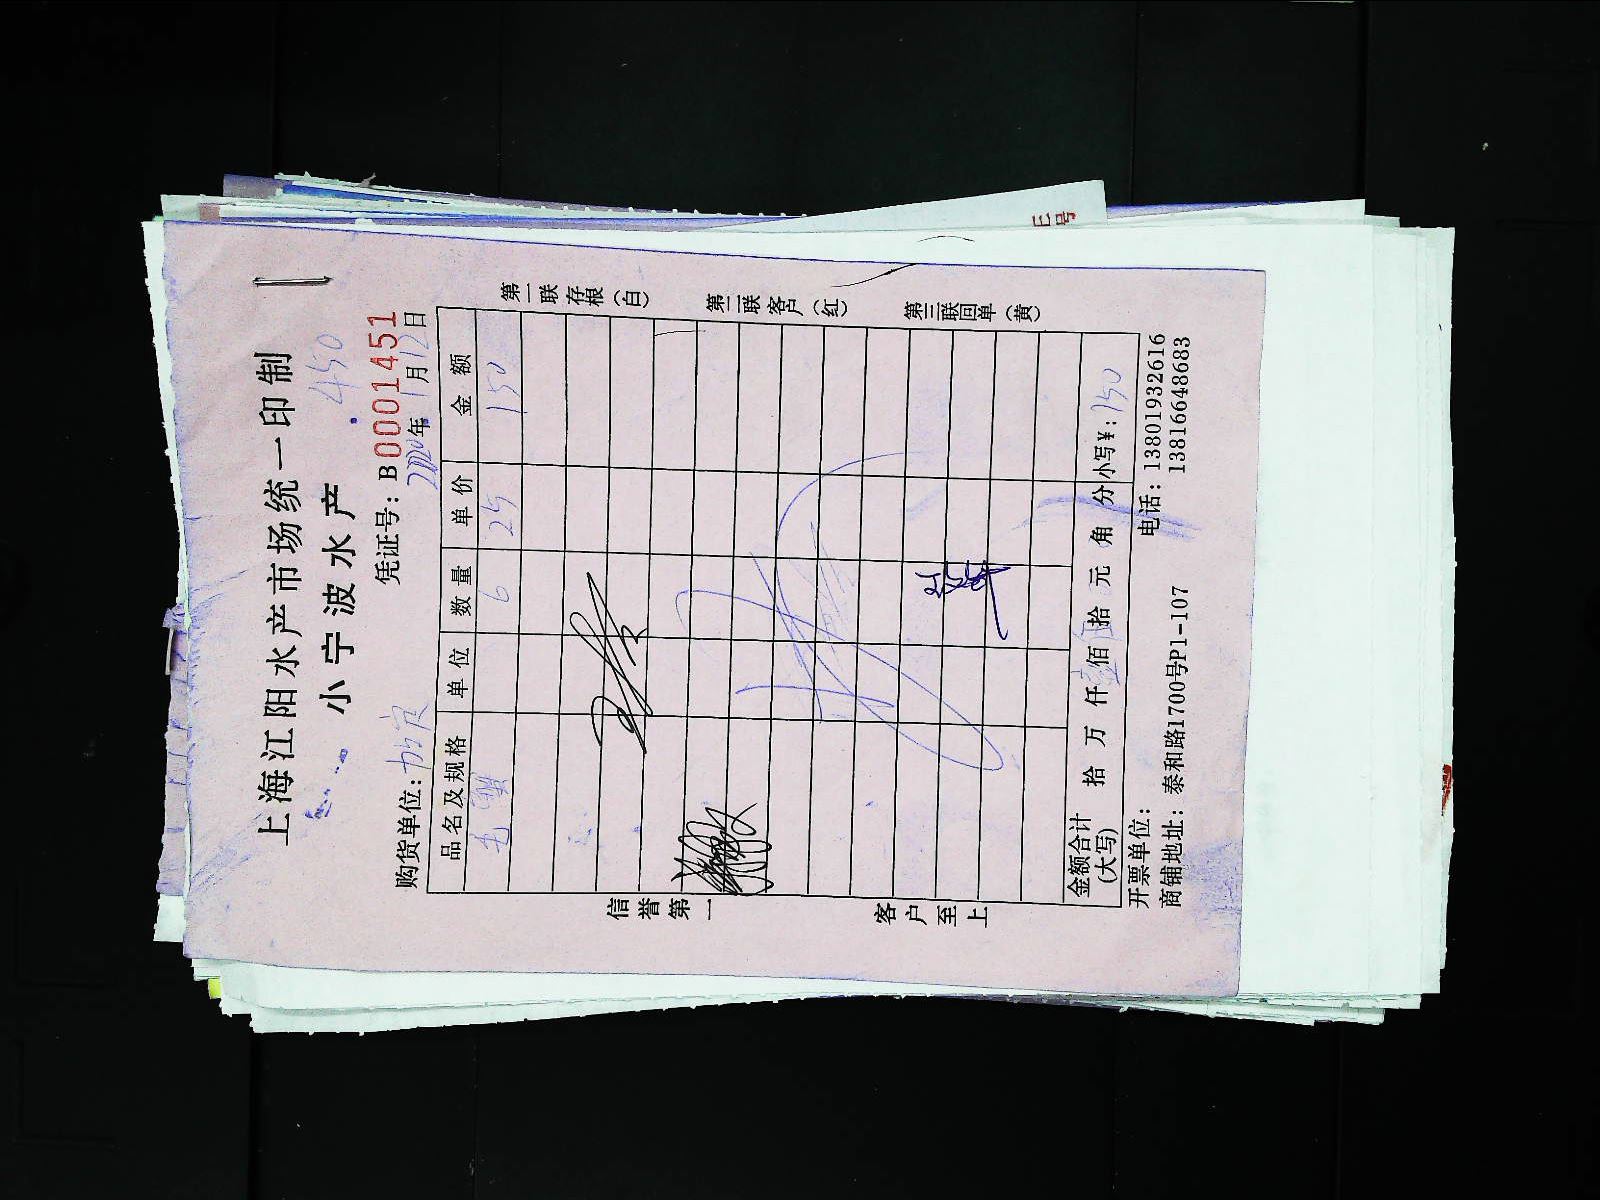 上海江阳水产市场统一印制
小宁波水产 450
凭证号：B0001451
购货单位： 2020年1月12日
品名及规格 单位 数量 单价 金额
毛 6 25 150
金额合计(大写) 拾 万 仟 佰 拾 元 角 分 小写¥：150
开票单位： 电话：13801932616
商铺地址：泰和路1700号P1-107 13816648683
第一联存根（白）
第二联客户（红）
第三联回单（黄）
信誉第一
客户至上
号